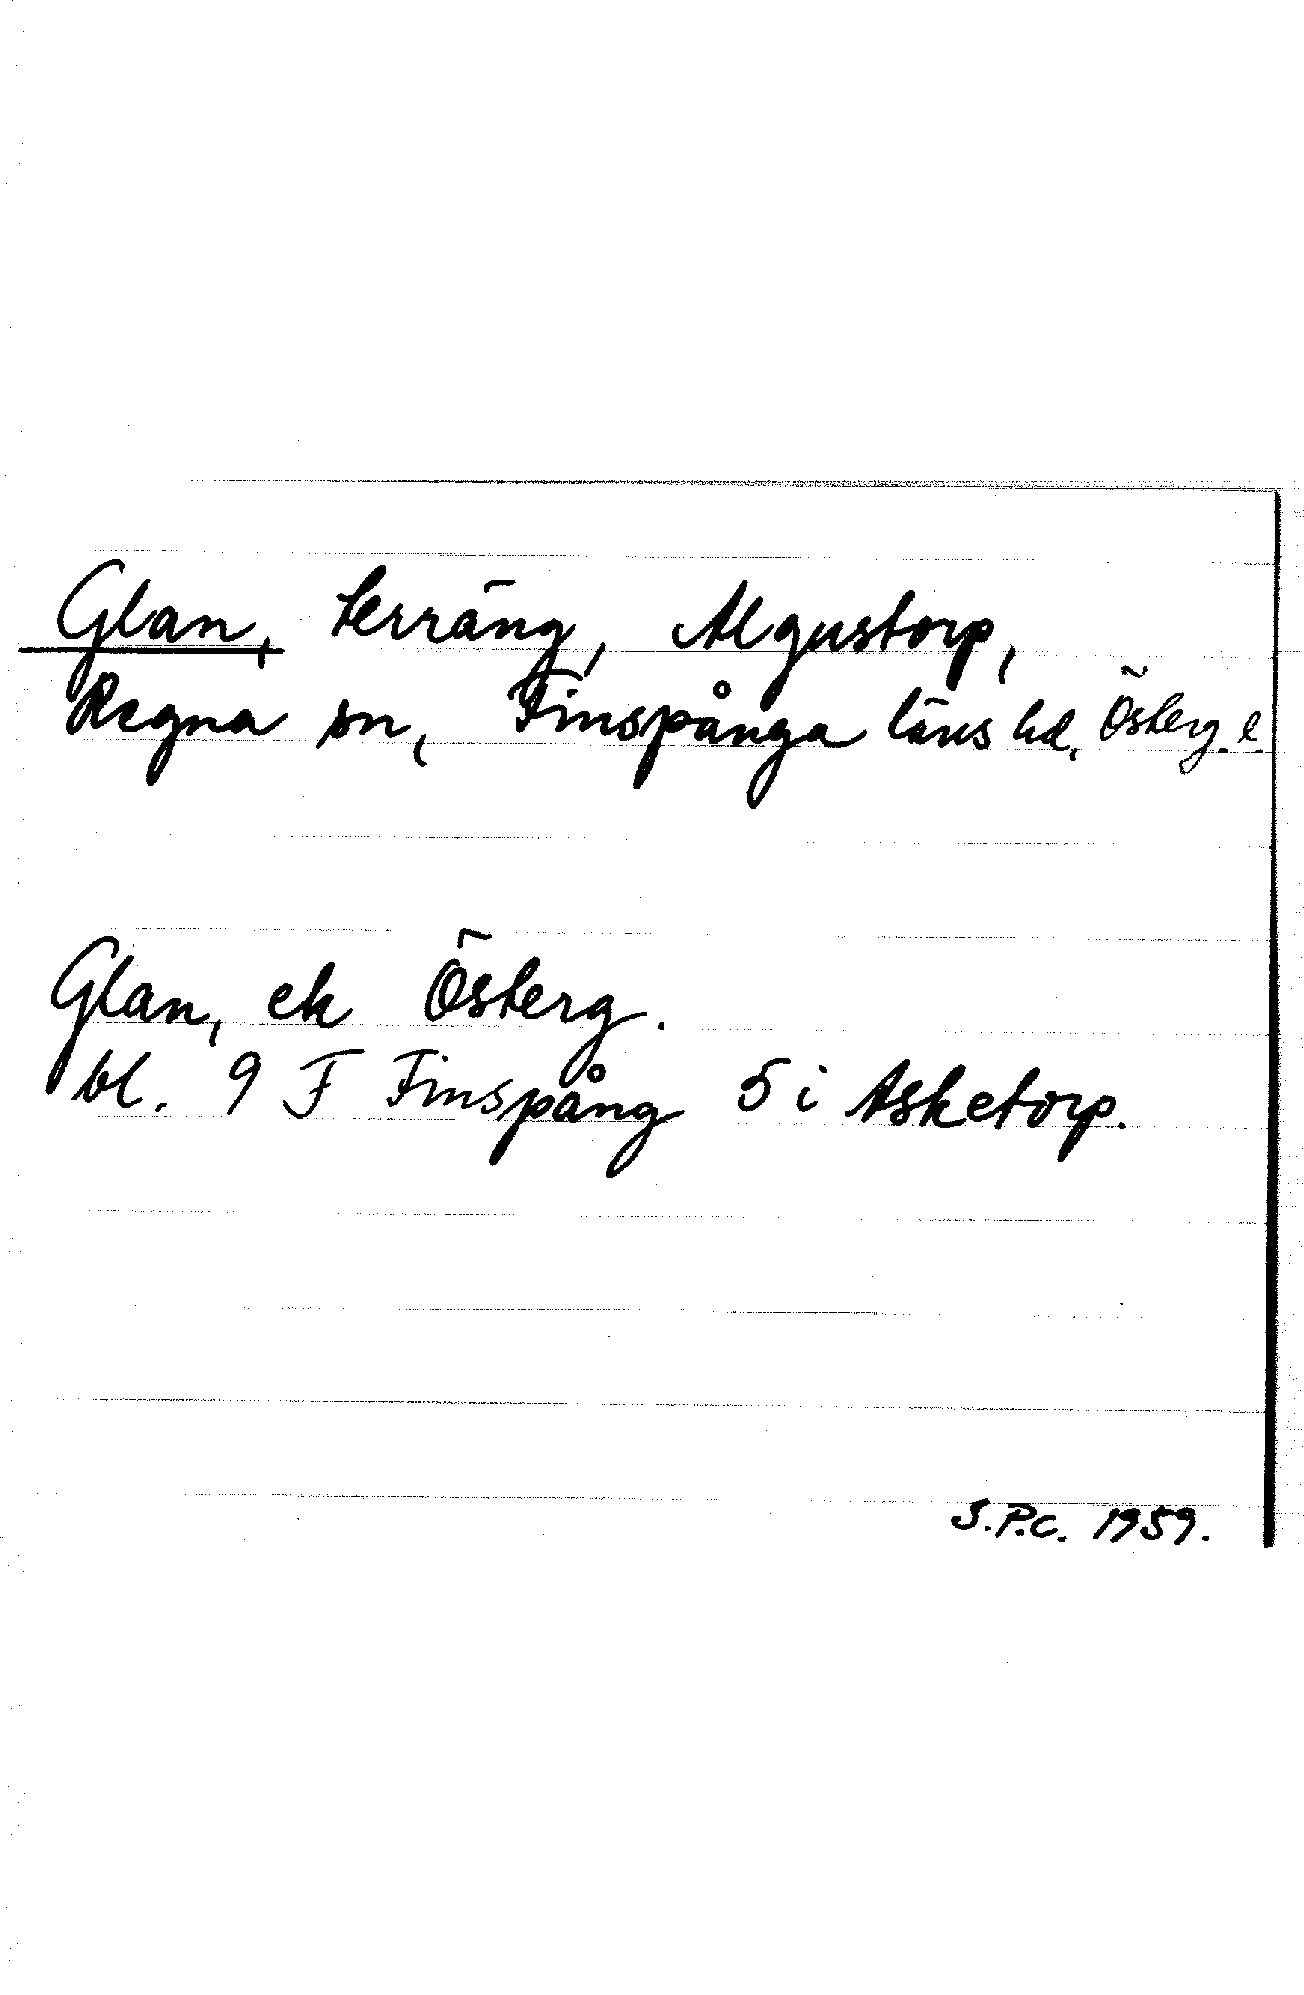 Glan, terräng, Algustorp,
Regna sn, Finspånga läns hd, Österg. l.
Glan, ek Österg.
bl. 9 F Finspång 5 i Asketorp.
S.P.C. 1959.